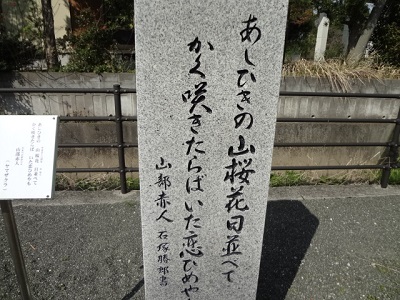 あしひきの山桜花日並べて
かく咲きたらばいた恋ひめや
山部赤人 石塚勝郎書